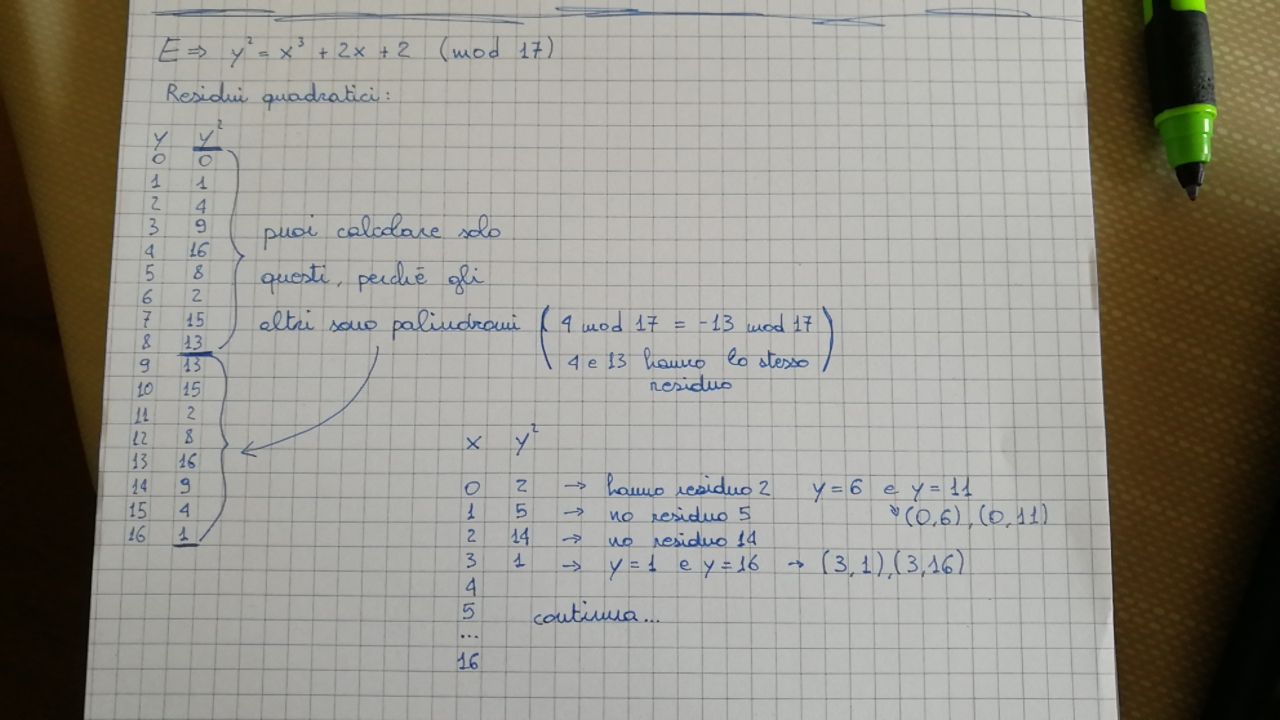 E ⇒ y² = x³ + 2x + 2 (mod 17)
Residui quadratici:
y y²
0 0
1 1
2 4
3 9
4 16
5 8
6 2
7 15
8 13
9 13
10 15
11 2
12 8
13 16
14 9
15 4
16 1
puoi calcolare solo
questi, perché gli
altri sono palindromi
( 4 mod 17 = -13 mod 17
4 e 13 hanno lo stesso
residuo )
x y²
0 2 → hanno residuo 2 y = 6 e y = 11
↳ (0,6), (0,11)
1 5 → no residuo 5
2 14 → no residuo 14
3 1 → y = 1 e y = 16 → (3,1), (3,16)
4
5 continua...
...
16